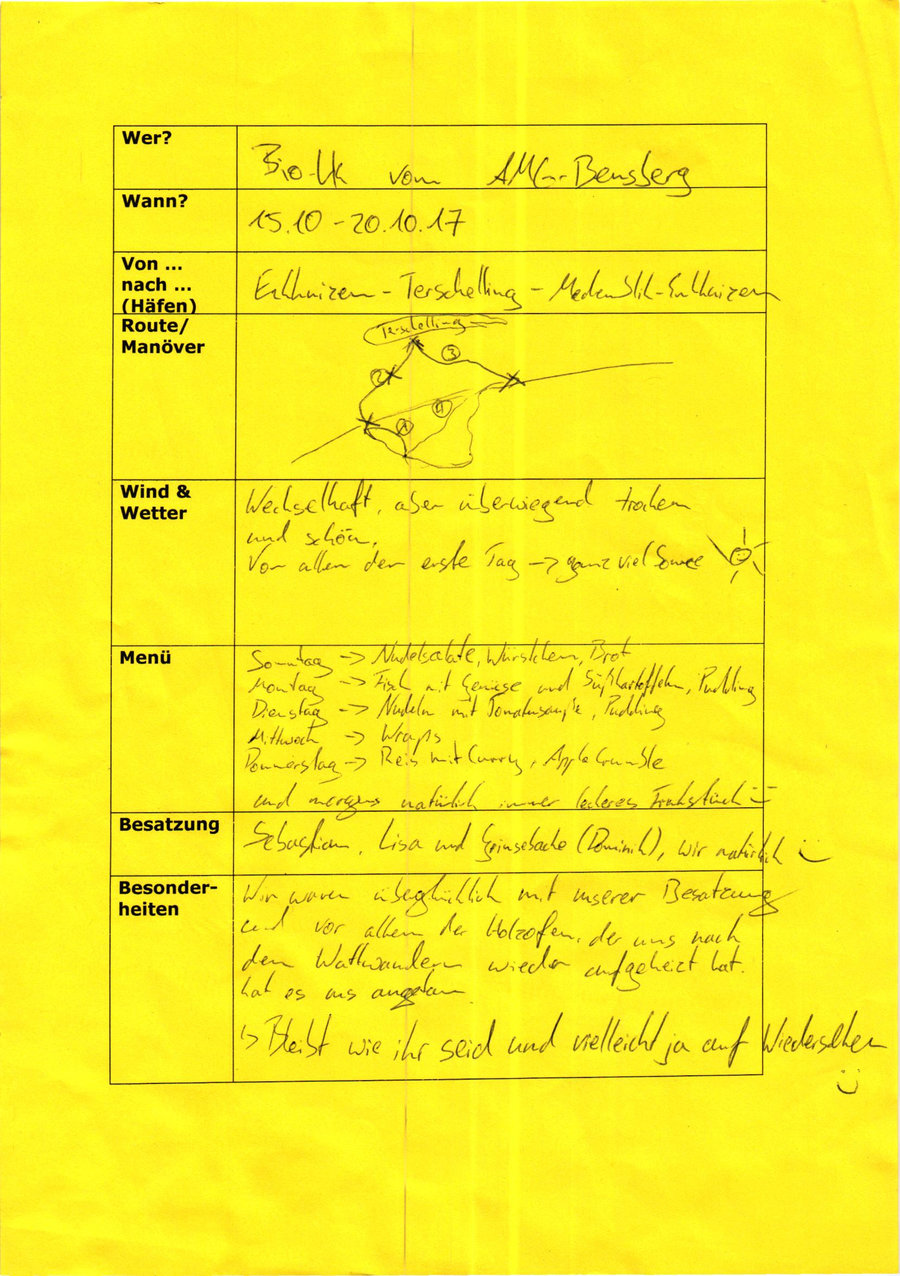 Wer?
Bio-Lk vom AMG-Bensberg
Wann?
15.10 - 20.10.17
Von ...
nach ...
(Häfen)
Enkhuizen - Terschelling - Medemblik - Enkhuizen
Route/
Manöver
Terschelling
3
2
4
1
Wind &
Wetter
Wechselhaft, aber überwiegend trocken
und schön.
Vor allem der erste Tag -> ganz viel Sonne
Menü
Sonntag -> Nudelsalate, Würstchen, Brot
Montag -> Fisch mit Gemüse und Süßkartoffeln, Pudding
Dienstag -> Nudeln mit Tomatensauße, Pudding
Mittwoch -> Wraps
Donnerstag -> Reis mit Curry, Apple Crumble
und morgens natürlich immer leckeres Frühstück
Besatzung
Sebastian, Lisa und Grinsebacke (Dominik), wir natürlich
Besonder-
heiten
Wir waren überglücklich mit unserer Besatzung
und vor allem der Holzofen, der uns nach
dem Wattwandern wieder aufgeheizt hat.
hat es uns angetan
↳ Bleibt wie ihr seid und vielleicht ja auf Wiedersehen